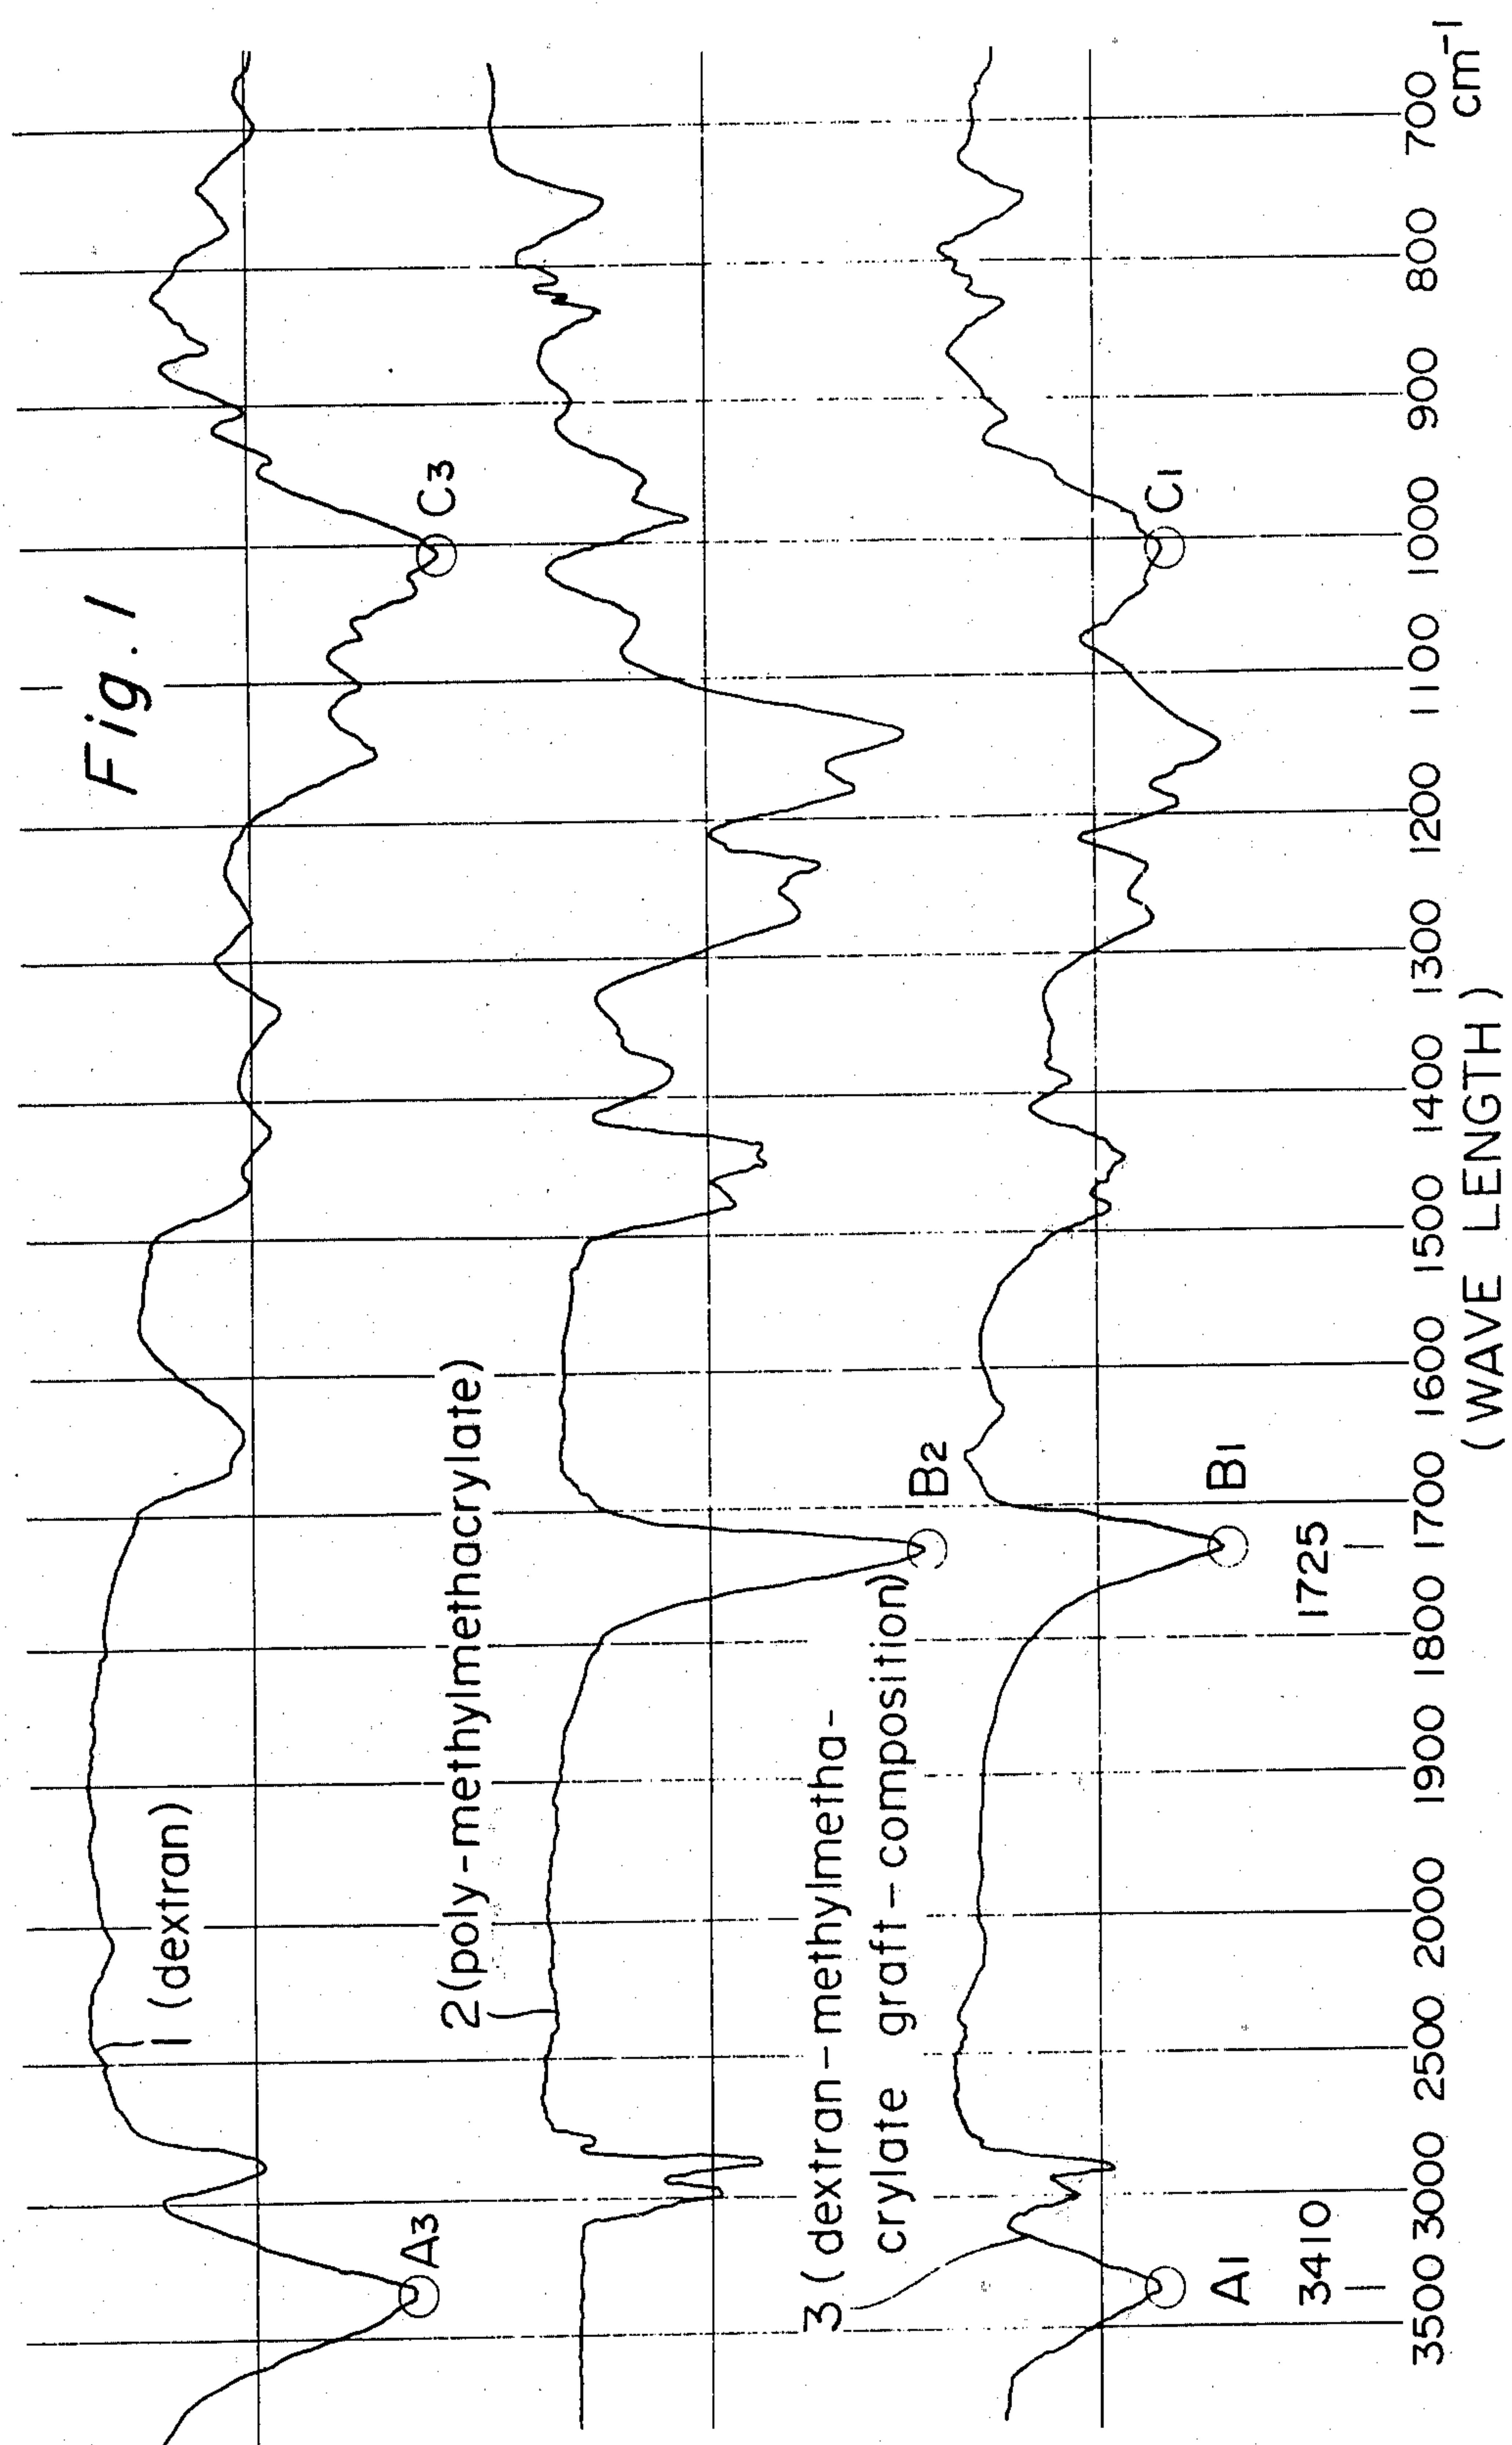 Fig. 1
1 (dextran)
A3
C3
2 (poly-methylmethacrylate)
B2
3 (dextran-methylmetha-
crylate graft-composition)
A1
B1
C1
3410
1725
3500 3000 2500 2000 1900 1800 1700 1600 1500 1400 1300 1200 1100 1000 900 800 700
(WAVE LENGTH)
cm-1